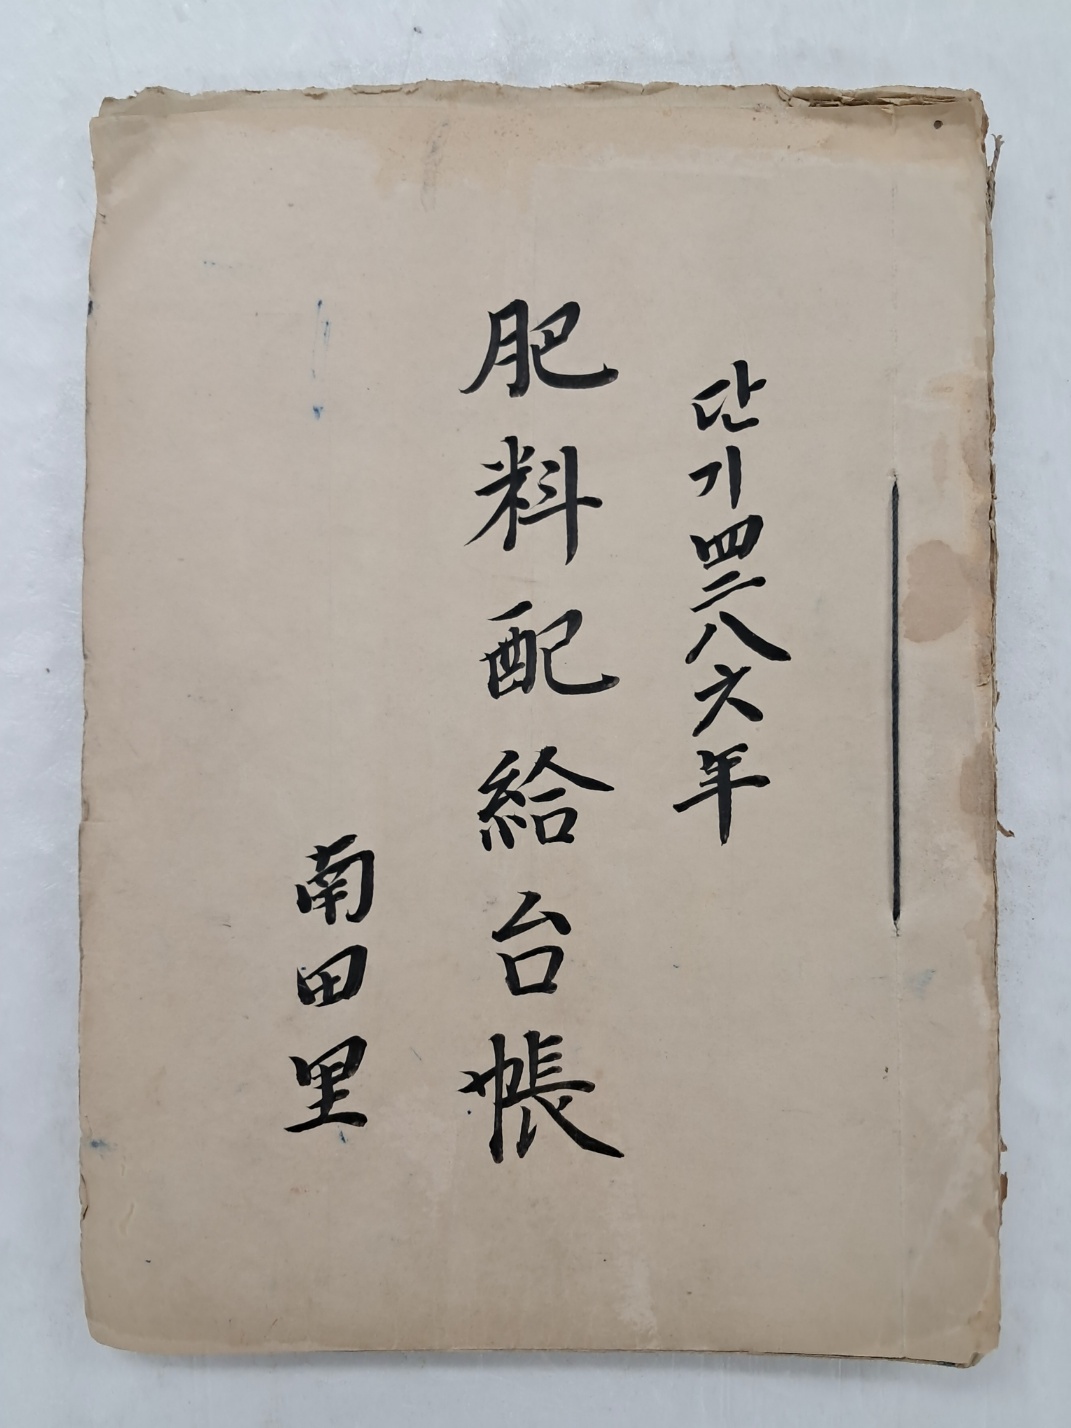 단기四二八六年
肥料配給台帳
南田里